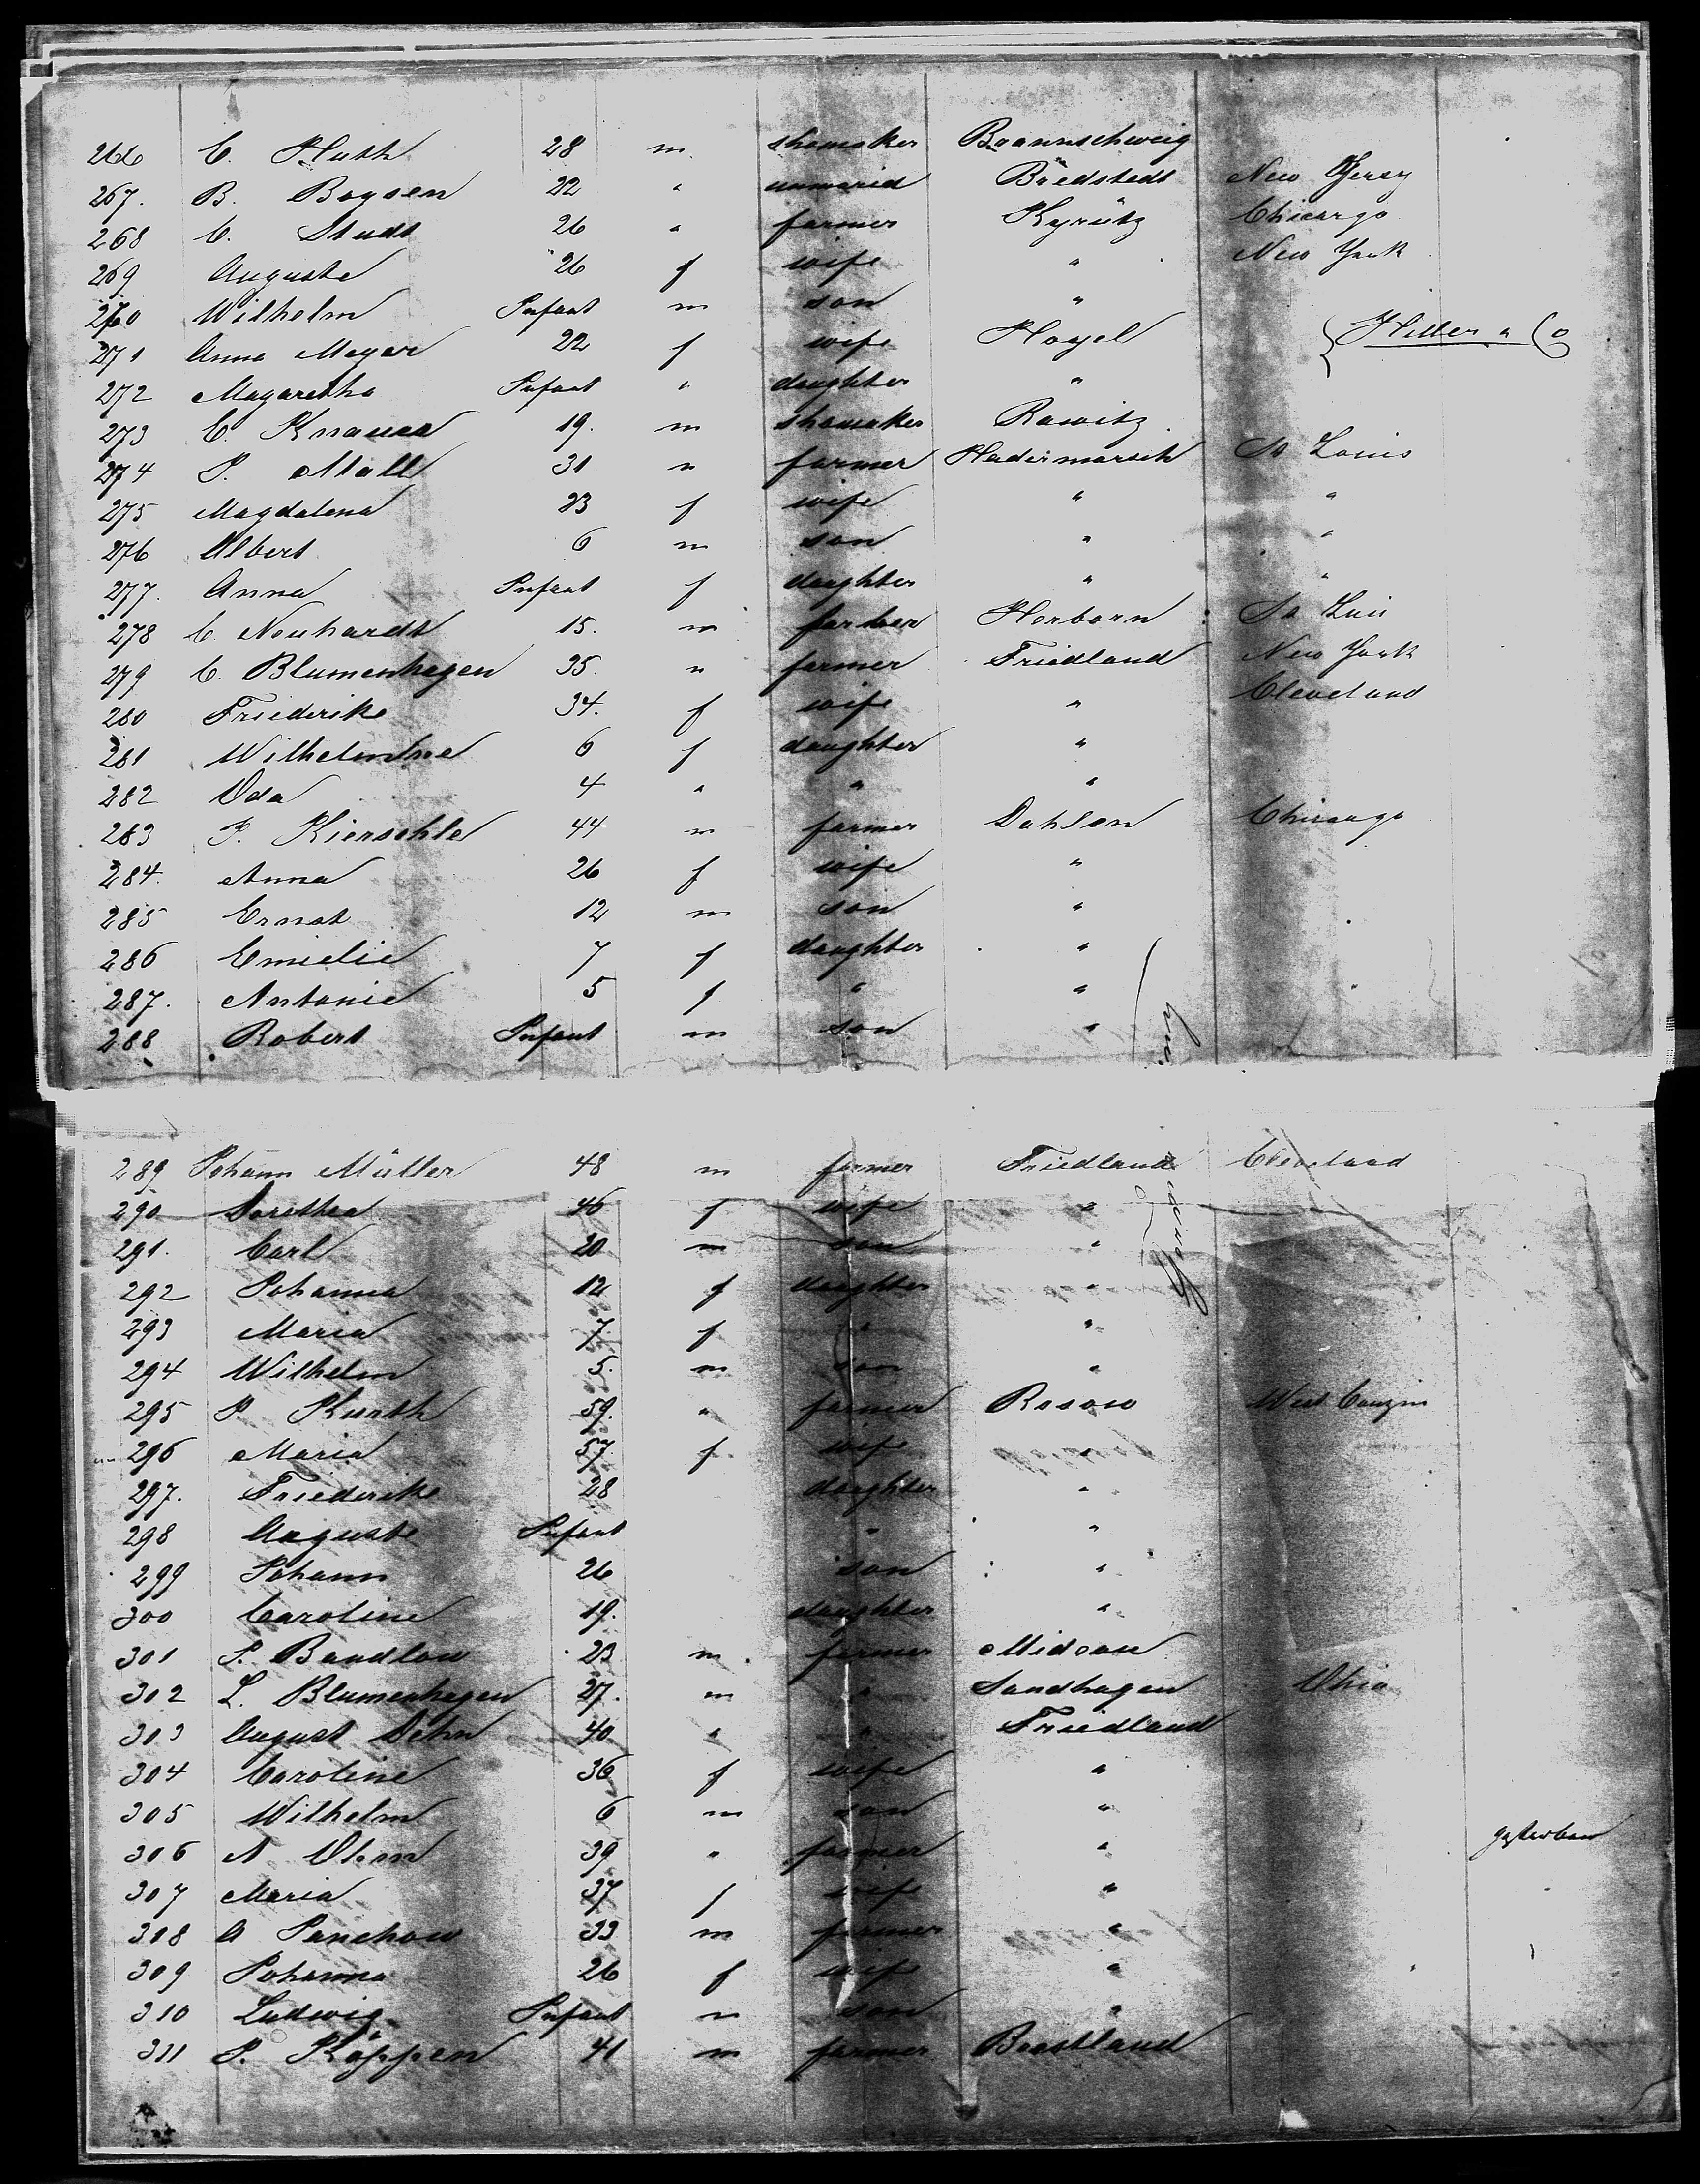 266 C. Huth 28 m shomaker Braunschweig
267. B. Boysen 22 " unmaried Brëdstedt New Jersy
268 C. Studt 26 " farmer Kyritz Chicargo
269 Auguste 26 f wife " New York
270 Wilhelm Infant m son "
271 Anna Meyer 22 f wife Hoyel Hiller & Co
272 Magaretha Infant " daughter "
273 C. Knauer 19. m shomaker Rawitz
274 P. Mall 31 " farmer Hadermarsch St Louis
275 Magdalena 23 f wife " "
276 Albert 6 m son " "
277. Anna Infant f daughter " "
278 C. Neuhardt 15. m farber Herborn St Luis
279 C. Blumenhagen 35. " farmer Friedland New York
280 Friederike 34. f wife " Cleveland
281 Wilhelmine 6 f daughter "
282 Oda 4 " " "
283 F. Kierschle 44 m farmer Dahlen Chicargo
284. Anna 26 f wife "
285 Ernst 12 m son "
286 Emielie 7 f daughter "
287. Antonie 5 f " "
288 Robert Infant m son "
289 Johann Müller 48 m farmer Friedland Cleveland
290 Dorethea 46 f wife "
291. Carl 20 m son "
292 Johanna 12 f daughter "
293 Maria 7. f " "
294 Wilhelm 5. m son "
295 J. Kurth 59. " farmer Rosow
296 Maria 57 f wife "
297. Friederike 28 daughter "
298 Auguste Infant " "
299 Johann 26 son "
300 Caroline 19. daughter "
301 J. Bandlow 23 m farmer
302 L. Blumenhagen 27. m " Sandhagen Ohio
303 August Dehn 40 " " Friedland
304 Caroline 36 f wife "
305 Wilhelm 6 m son "
306 A 39 " farmer " gestorben
307 Maria 37 f wife "
308 A Panchow 33 m farmer "
309 Johanna 26 f wife "
310 Ludwig Infant m son "
311 J. Köppen 41 m farmer Beestland